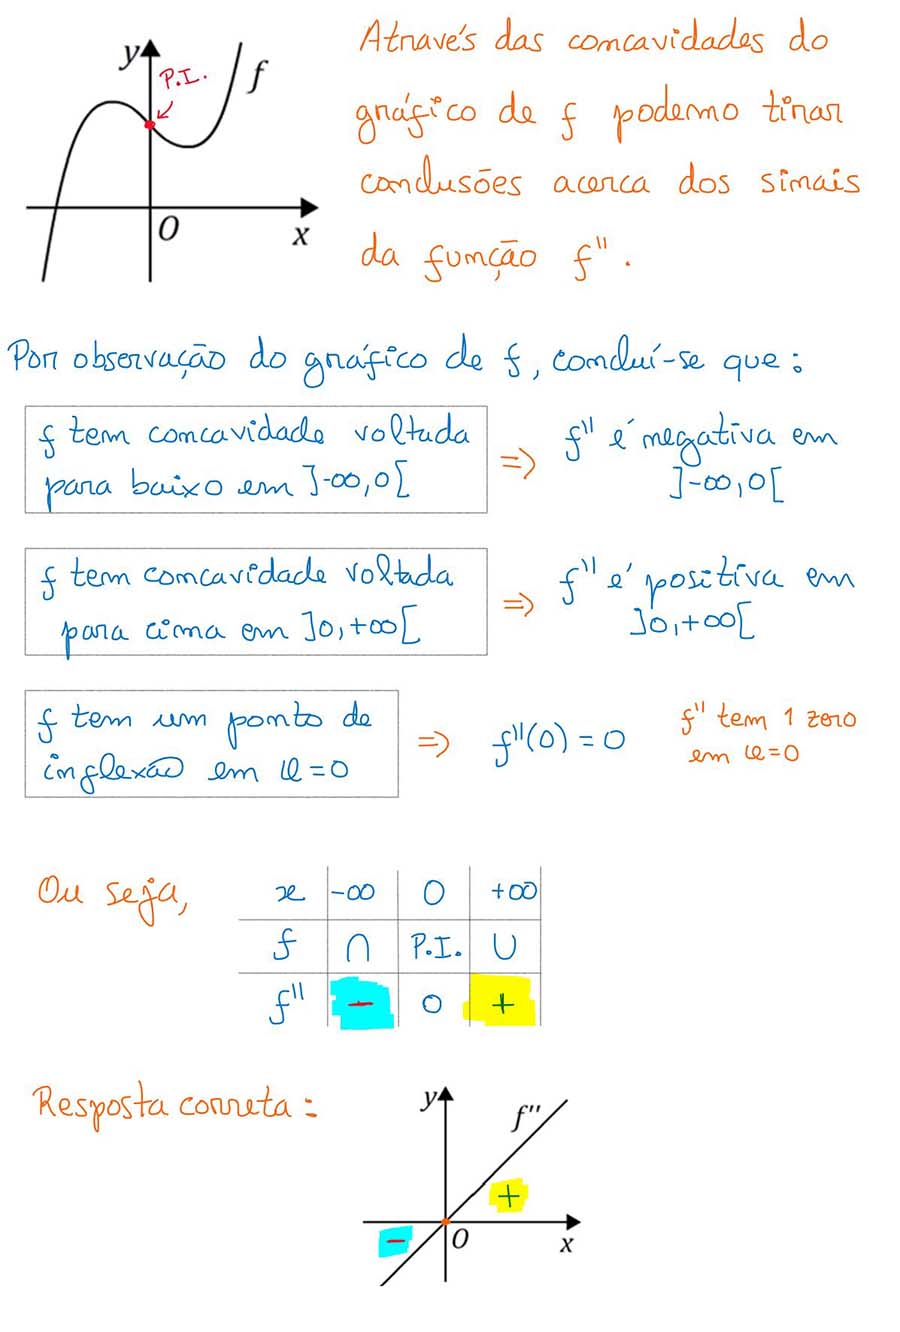 y
P.I.
f
O
x
Através das concavidades do
gráfico de f podemo tirar
conclusões acerca dos sinais
da função f''.
Por observação do gráfico de f, concluí-se que:
f tem concavidade voltada
para baixo em ]-∞,0[
⇒ f'' é negativa em
]-∞,0[
f tem concavidade voltada
para cima em ]0,+∞[
⇒ f'' é positiva em
]0,+∞[
f tem um ponto de
inflexão em x=0
⇒ f''(0) = 0
f'' tem 1 zero
em x=0
Ou seja,
x -∞ 0 +∞
f ∩ P.I. ∪
f'' - 0 +
Resposta correta:
y
f''
+
-
O
x